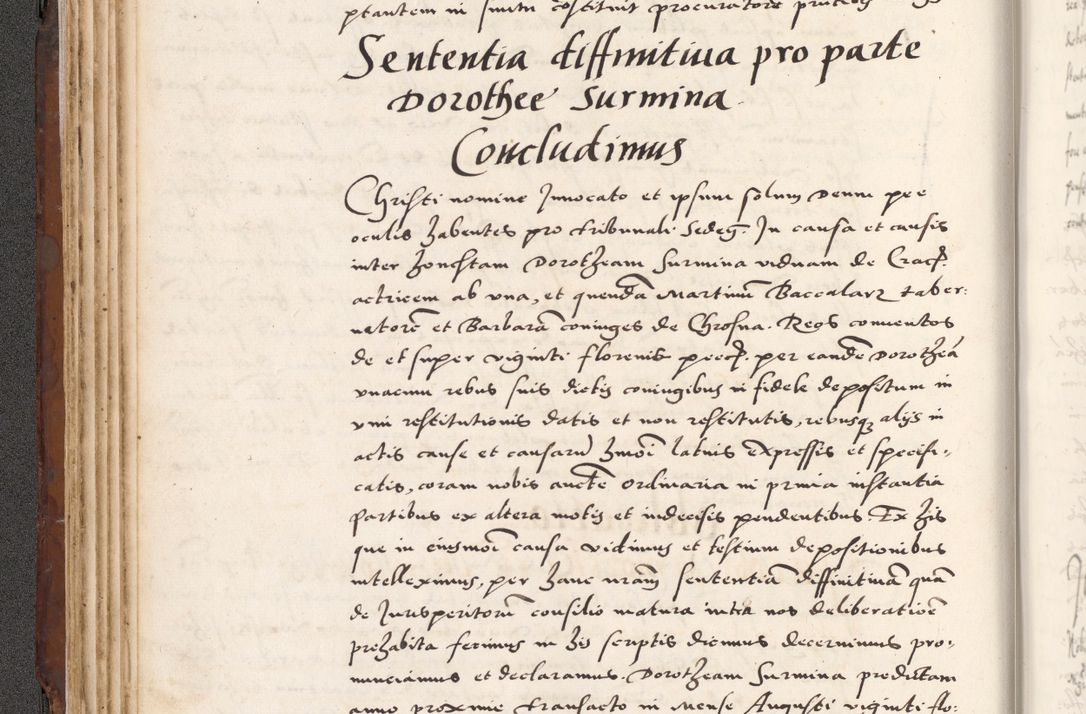 ptantem in simtu constituit procuratore
Sententia diffinitiua pro parte
Dorothee Surmina
Concludimus
Christi nomine Inuocato et ipsum solum Deum pre
oculis habentes pro tribunali sedeñ. In causa et causis
inter honestam Dorotheam Surmina viduam de Cracȝ.
actricem ab vna, et quendā Martinū Baccalarz taber-
natorē et Barbarā coniuges de Chrosna. Reos conuentos
de et super viginti florenis pecȝ. per eandē Dorotheā
vnacum rebus suis dictis coniugibus in fidele depositum in
vim restitutionis datis et non restitutis, rebusqȝ alijs in
actis cause et causarū hmōi latius expressis et specifi-
catis, coram nobis aucte ordinaria in prima instantia
Partibus ex altera motis et indecisis pendentibus. Ex his
que in eiusmōi causa vidimus et testium depositionibus
intelleximus, per hanc nrām sententiā diffinitiuā quā
de Iurisperitorū consilio matura intra nos deliberatiōe
prehabita ferimus in his scriptis dicimus decernimus pro-
nunciamus et declaramus. Dorotheam Surmina predictam
anno proxime transacto in mense Augusti viginti flo-